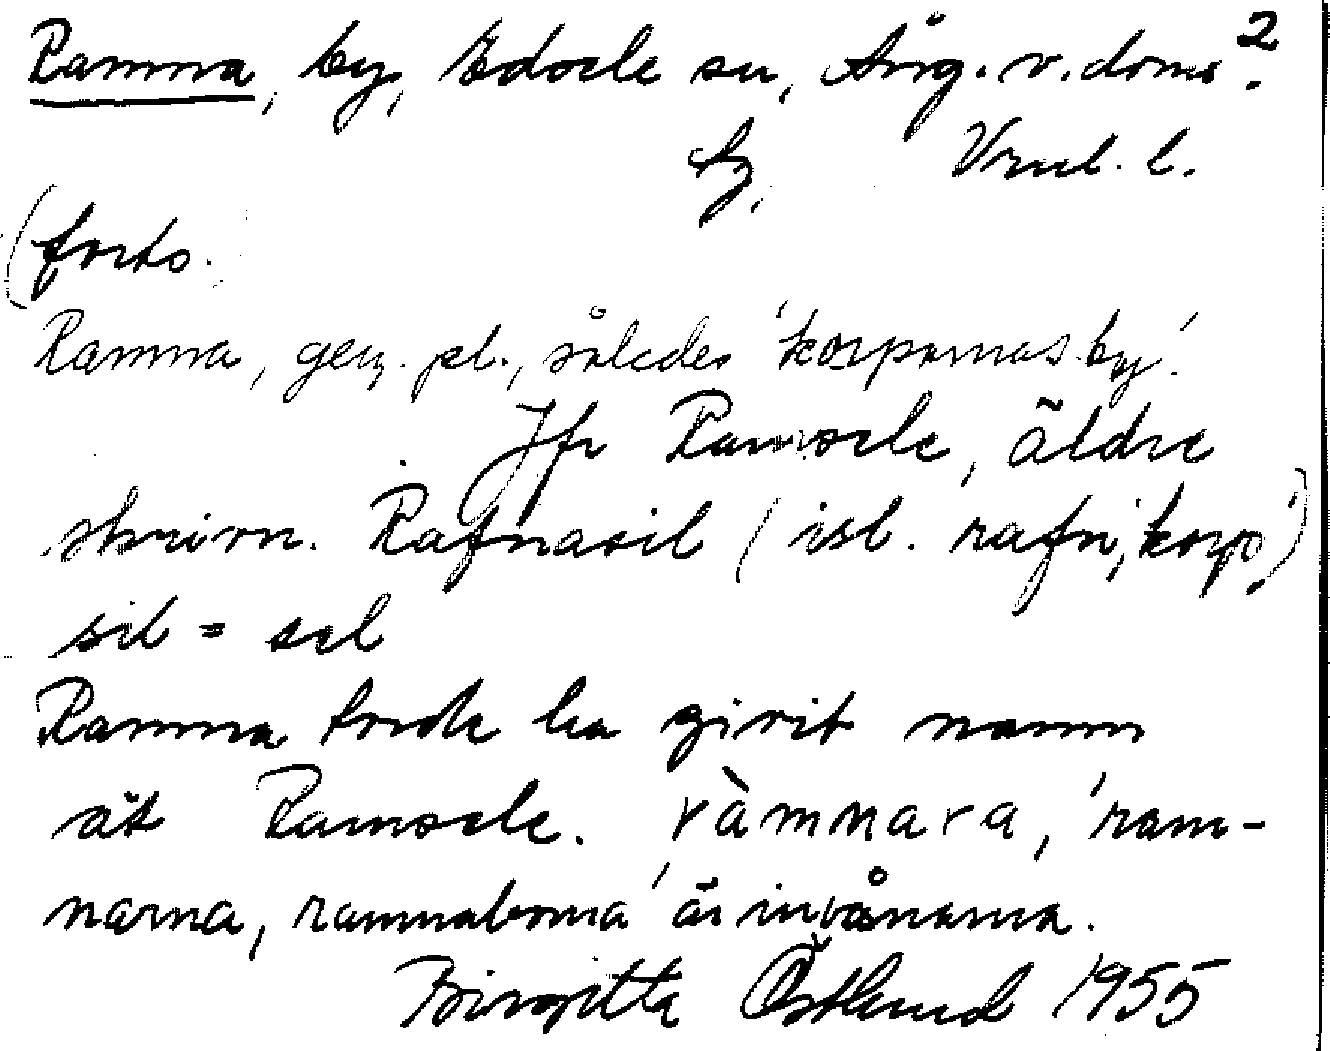 Ramna, by, Edsele sn, Ång. v. doms. 2
by, Vrml. l.
(forts.
Ramna, gen. pl., således 'korparnas by'.
Jfr Ramsele, äldre
skrivn. Rafnasil (isl. rafn, 'korp')
sil = sel
Ramna torde ha givit namn
åt Ramsele. ràmnara, 'ram-
narna, ramnaborna' är invånarna.
Birgitta Östlund 1955